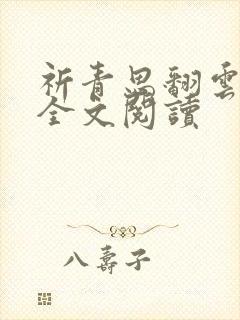 祈青思翻雲
全文閱讀
八壽子